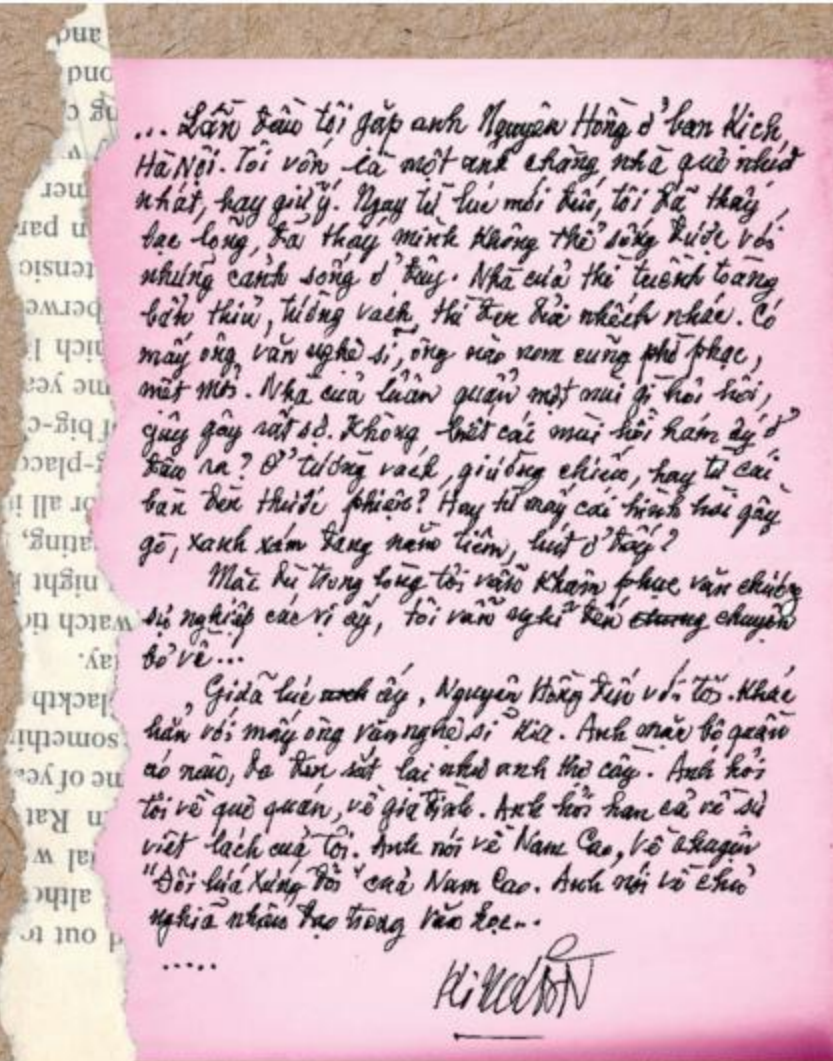 ... Lần đầu tôi gặp anh Nguyên Hồng ở ban Kịch,
Hà Nội. Tôi vốn là một anh chàng nhà quê nhút
nhát, hay giữ ý. Ngay từ lúc mới đến, tôi đã thấy
lạc lõng, đã thấy mình không thể sống được với
những cảnh sống ở đây. Nhà cửa thì tuềnh toàng
bẩn thỉu, tường vách thì đen đủi nhếch nhác. Có
mấy ông văn nghệ sĩ, ông nào nom cũng phờ phạc,
mệt mỏi. Nhà cửa luôn quẩn một mùi gì hôi hôi,
gây gây rất sợ. Không biết cái mùi hôi hám ấy ở
đâu ra? Ở tường vách, giường chiếu, hay từ cái
bàn đèn thuốc phiện? Hay từ mấy cái hình hài gầy
gò, xanh xám đang nằm tiêm, hút ở đấy?
Mặc dù trong lòng tôi vẫn khâm phục văn chương
sự nghiệp các vị ấy, tôi vẫn nghĩ đến chuyện
bỏ về...
Giữa lúc ấy, Nguyên Hồng đến với tôi. Khác
hẳn với mấy ông văn nghệ sĩ kia. Anh mặc bộ quần
áo nâu, da đen sắt lại như anh thợ cày. Anh hỏi
tôi về quê quán, về gia đình. Anh hỏi han cả về sự
viết lách của tôi. Anh nói về Nam Cao, về chuyện
"Đôi lứa xứng đôi" của Nam Cao. Anh nói về chủ
nghĩa nhân đạo trong văn học...
.....
Kim Lân
and
ond
ng
ner
n par
tensio
perwe
hich
me yea
f big-c
g-place
or all i
ating,
night
watch tic
ay.
lackth
something
ne of ye
n Rat
ial w
altho
d out to